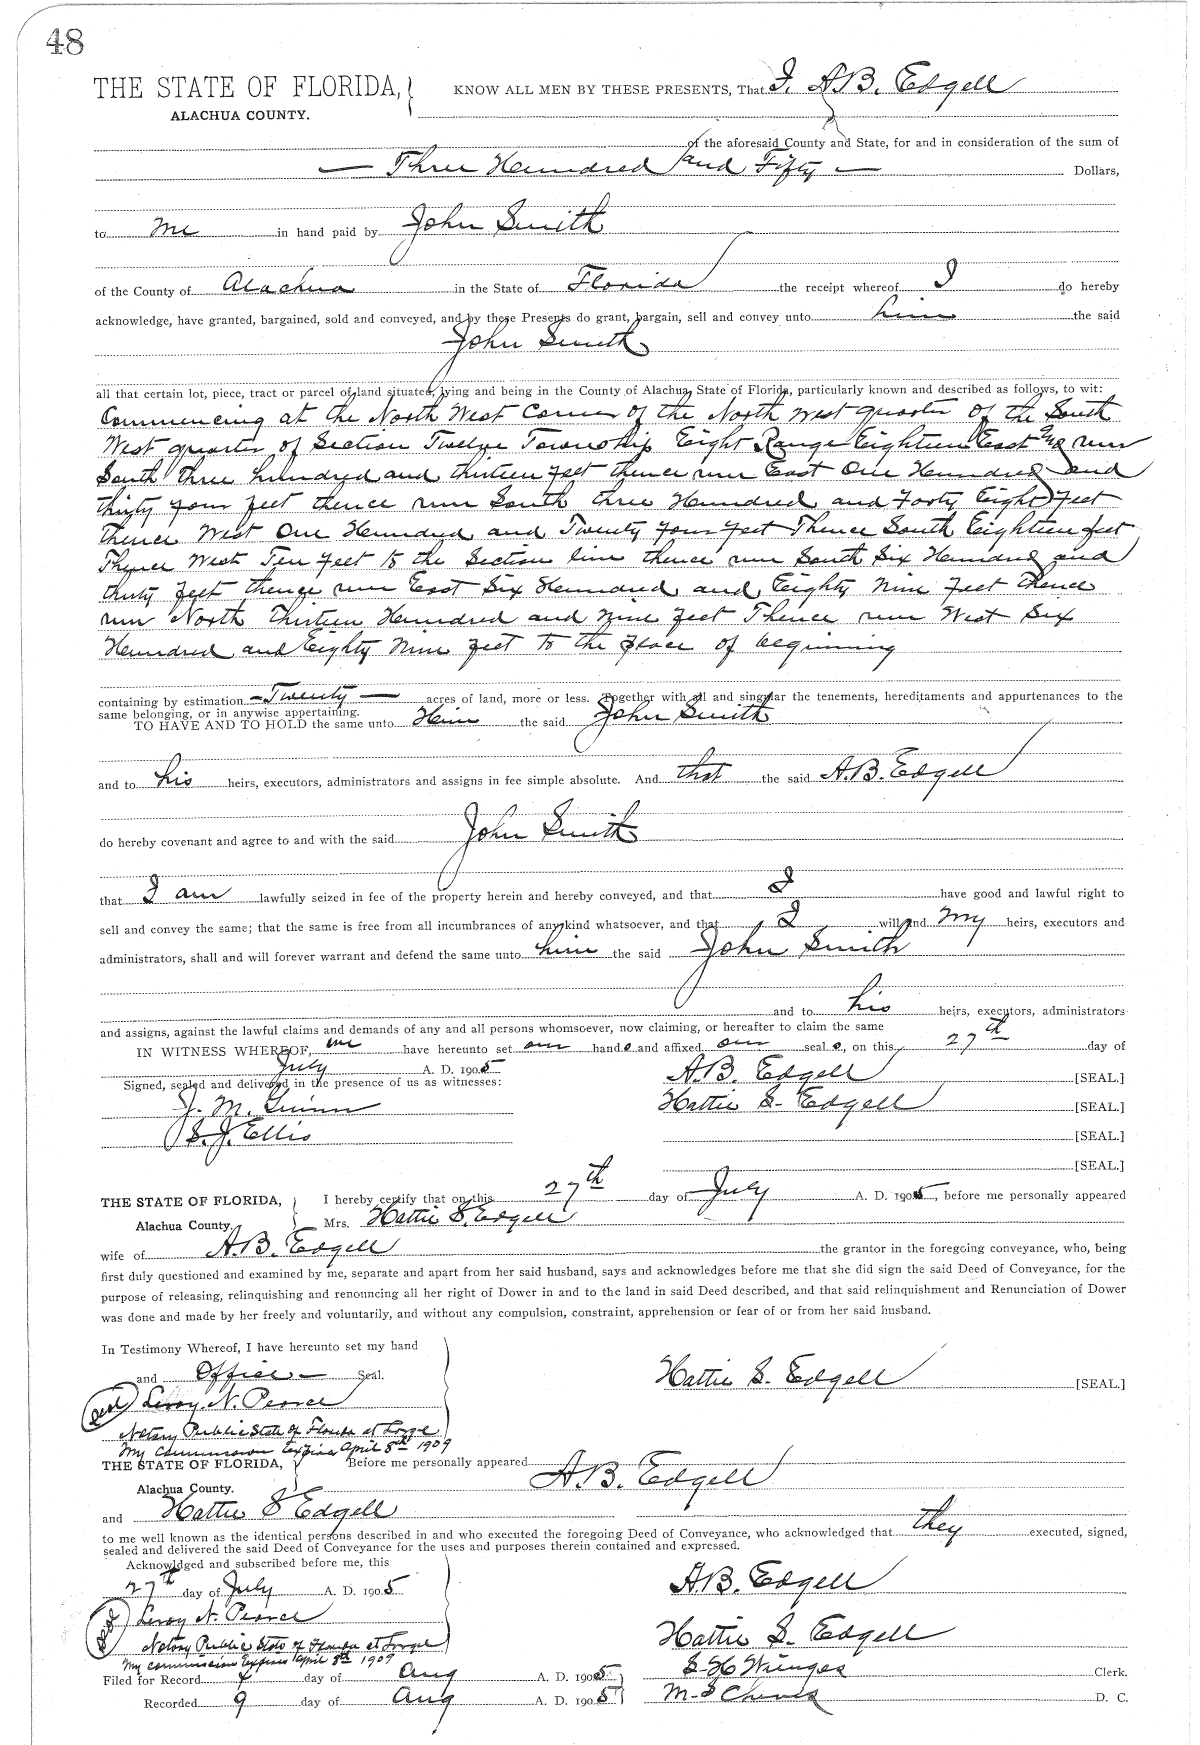 48
THE STATE OF FLORIDA, KNOW ALL MEN BY THESE PRESENTS, That I, A.B. Edgell
ALACHUA COUNTY.
of the aforesaid County and State, for and in consideration of the sum of
— Three Hundred and Fifty — Dollars,
to me in hand paid by John Smith
of the County of Alachua in the State of Florida the receipt whereof I do hereby
acknowledge, have granted, bargained, sold and conveyed, and by these Presents do grant, bargain, sell and convey unto him the said
John Smith
all that certain lot, piece, tract or parcel of land situated, lying and being in the County of Alachua, State of Florida, particularly known and described as follows, to wit:
Commencing at the North West Corner of the North west quarter of the South
West quarter of Section Twelve Township Eight Range Eighteen East and run
South three hundred and thirteen feet thence run East One Hundred and
thirty four feet thence run South three Hundred and Forty Eight feet
Thence West One Hundred and Twenty four feet Thence South Eighteen feet
Thence West Ten feet to the Section line thence run South Six Hundred and
thirty feet thence run East Six Hundred and Eighty Nine feet thence
run North Thirteen Hundred and nine feet Thence run West Six
Hundred and Eighty Nine feet to the place of beginning
containing by estimation — Twenty — acres of land, more or less. Together with all and singular the tenements, hereditaments and appurtenances to the
same belonging, or in anywise appertaining.
TO HAVE AND TO HOLD the same unto Him the said John Smith
and to his heirs, executors, administrators and assigns in fee simple absolute. And that the said A.B. Edgell
do hereby covenant and agree to and with the said John Smith
that I am lawfully seized in fee of the property herein and hereby conveyed, and that I have good and lawful right to
sell and convey the same; that the same is free from all incumbrances of any kind whatsoever, and that I will and my heirs, executors and
administrators, shall and will forever warrant and defend the same unto him the said John Smith
and to his heirs, executors, administrators
and assigns, against the lawful claims and demands of any and all persons whomsoever, now claiming, or hereafter to claim the same
IN WITNESS WHEREOF, we have hereunto set our hands and affixed our seals, on this 27th day of
July A. D. 1905 A.B. Edgell [SEAL.]
Signed, sealed and delivered in the presence of us as witnesses:
J. M. Guinn Hattie S. Edgell [SEAL.]
S. J. Ellis [SEAL.]
[SEAL.]
THE STATE OF FLORIDA, I hereby certify that on this 27th day of July A. D. 1905, before me personally appeared
Alachua County. Mrs. Hattie S. Edgell
wife of A.B. Edgell the grantor in the foregoing conveyance, who, being
first duly questioned and examined by me, separate and apart from her said husband, says and acknowledges before me that she did sign the said Deed of Conveyance, for the
purpose of releasing, relinquishing and renouncing all her right of Dower in and to the land in said Deed described, and that said relinquishment and Renunciation of Dower
was done and made by her freely and voluntarily, and without any compulsion, constraint, apprehension or fear of or from her said husband.
In Testimony Whereof, I have hereunto set my hand
and Office — Seal. Hattie S. Edgell [SEAL.]
Seal Leroy N. Pearce
Notary Public State of Florida at Large
My commission Expires April 8th 1909
THE STATE OF FLORIDA, Before me personally appeared A.B. Edgell
Alachua County.
and Hattie S Edgell
to me well known as the identical persons described in and who executed the foregoing Deed of Conveyance, who acknowledged that they executed, signed,
sealed and delivered the said Deed of Conveyance for the uses and purposes therein contained and expressed.
Acknowldged and subscribed before me, this
27th day of July A. D. 1905 A.B. Edgell
Seal Leroy N. Pearce
Notary Public State of Florida at Large Hattie S. Edgell
My commission Expires April 8th 1909
Filed for Record day of Aug A. D. 1905 S. H. Wienges Clerk.
Recorded 9 day of Aug A. D. 1905 M. S. D. C.